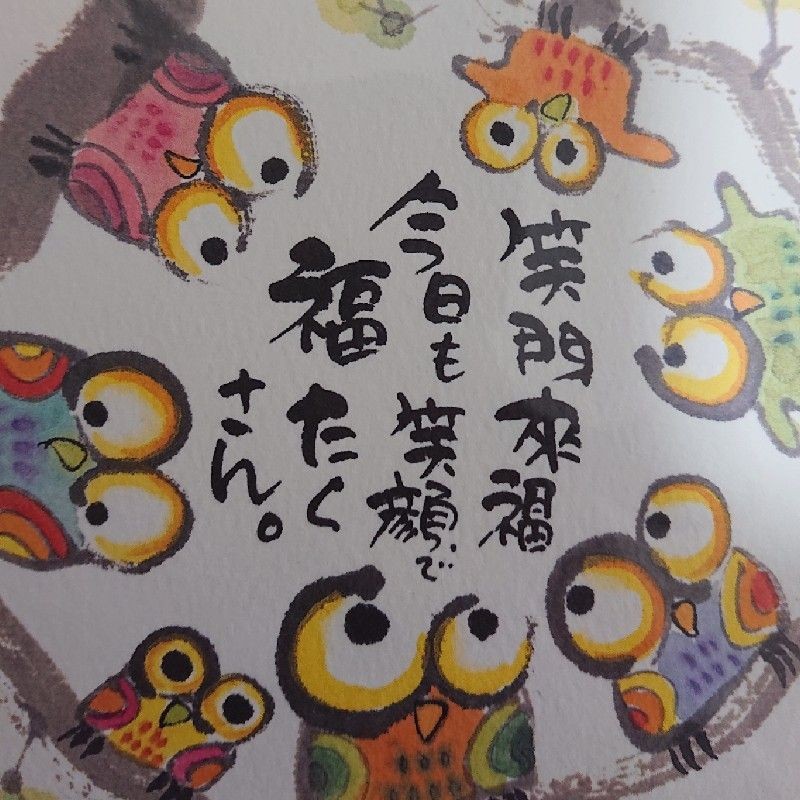 笑門来福
今日も笑顔で
福たく
さん。